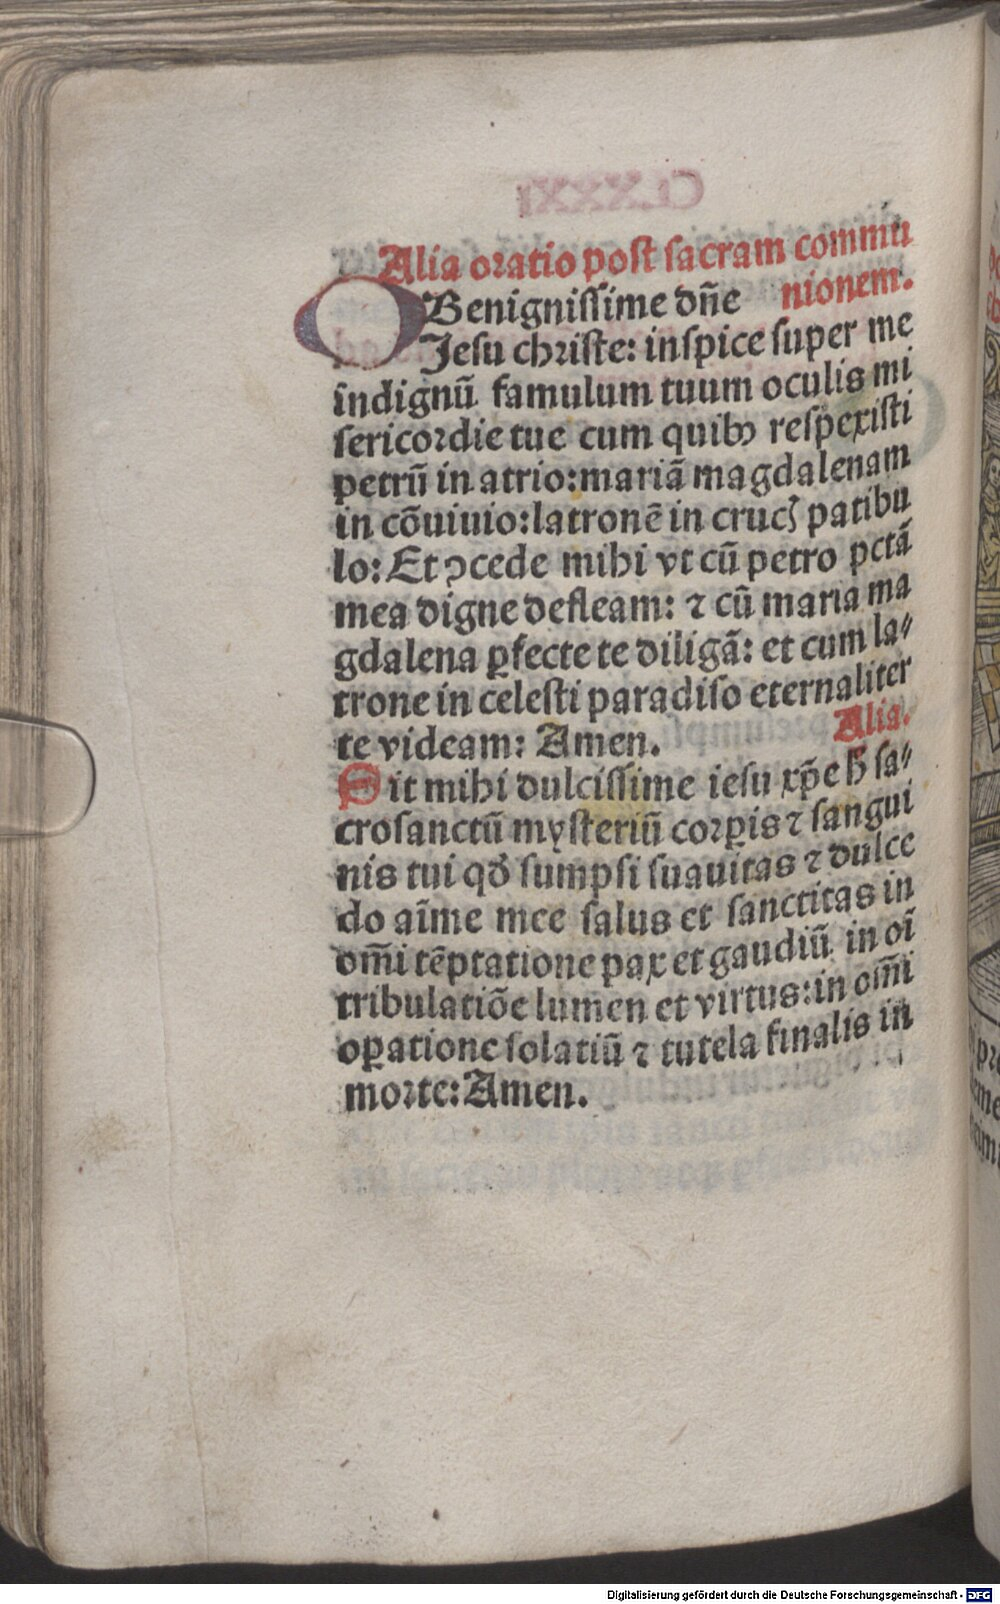 Alia oratio post sacram commu
nionem.
O Benignissime dñe
Jesu christe: inspice super me
indignū famulum tuum oculis mi
sericordie tue cum quibꝰ respexisti
petrū in atrio:mariā magdalenam
in cōuiuio:latronē in crucꝭ patibu
lo: Et ꝯcede mihi vt cū petro pctā
mea digne defleam: ⁊ cū maria ma
gdalena ꝑfecte te diligā: et cum la⸗
trone in celesti paradiso eternaliter
te videam: Amen.
Alia.
Sit mihi dulcissime iesu xp̄e h̄ sa⸗
crosanctū mysteriū corꝑis ⁊ sangui
nis tui qđ sumpsi suauitas ⁊ dulce
do aīme mee salus et sanctitas in
om̄i tēptatione pax et gaudiū in oī
tribulatiōe lumen et virtus:in om̄i
oꝑatione solatiū ⁊ tutela finalis in
morte: Amen.
Digitalisierung gefördert durch die Deutsche Forschungsgemeinschaft - DFG